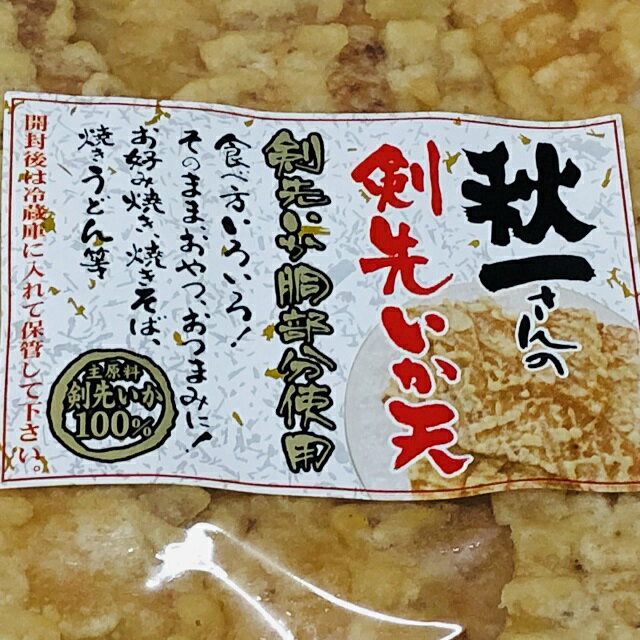 秋一さんの
剣先いか天
剣先いか胴部分使用
食べ方いろいろ!
そのまま、おやつ、おつまみに!
お好み焼き、焼きそば、
焼きうどん等
主原料
剣先いか
100%
開封後は冷蔵庫に入れて保管して下さい。